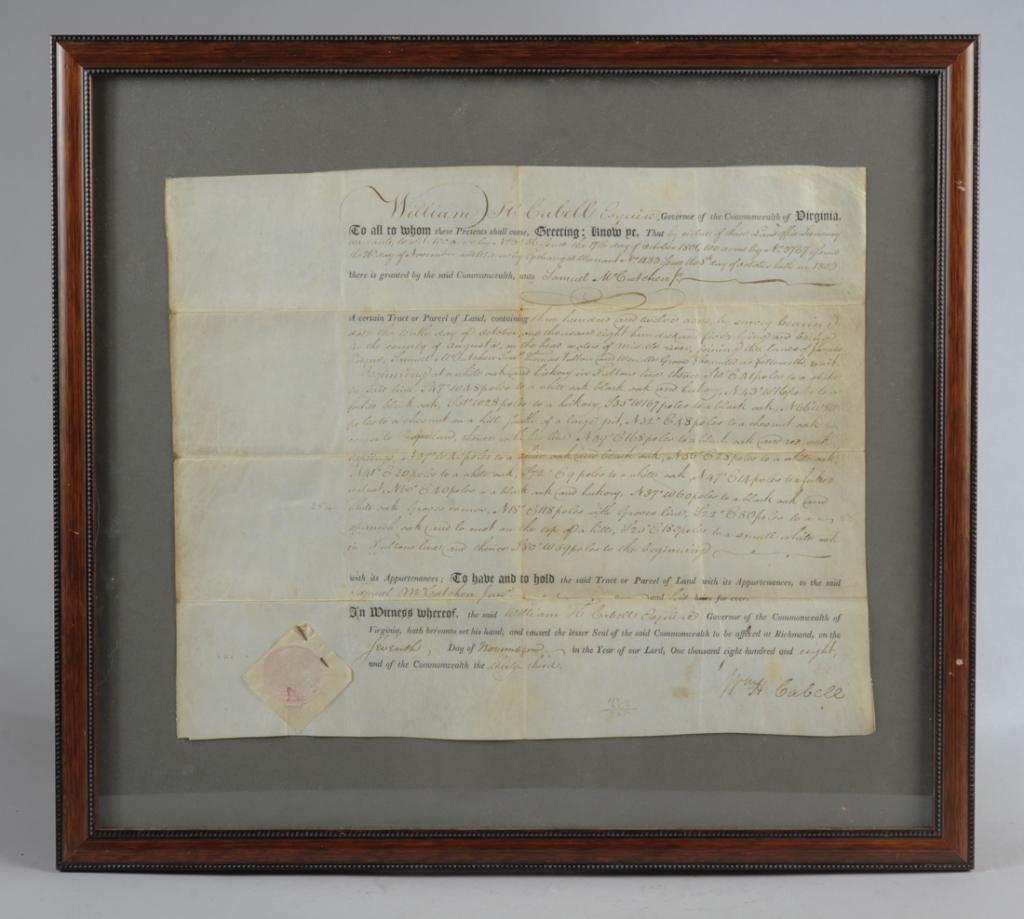 William H Cabell Esquire, Governor of the Commonwealth of Virginia.
To all to whom these Presents shall come, Greeting: Know ye, That by virtue of three Land office Treasury
the 17th day of October 1801, 100 acres by No 3767 issued
day of November by Exchange Warrant No 1480 issued the 3d day of October both in 1803
there is granted by the said Commonwealth, unto Samuel McCutchen Jr
A certain Tract or Parcel of Land, containing three hundred and twelve acres, by survey bearing
date the tenth day of October, one thousand eight hundred and lying and being
in the county of Augusta, on the head waters of Middle river, joining the lands of
Samuel McCutchen Senr Thomas and Graves and bounded as followeth, to wit,
Beginning at a white oak and hickory in line, thence poles to a white
in said line, W 48 poles to a white oak black oak and hickory, N 43° W 16 poles to a
black oak, W 28 poles to a hickory, S 35° W 167 poles to a black oak, N 66° W
poles to a chesnut on a hill South of a large pit, N 32° E 48 poles to a chesnut oak
corner to Copeland, thence with his line N 39° E 168 poles to a black oak and red oak
N 37° W poles to a white oak and black oak, N 50° E 28 poles to a white oak,
N 41° E 20 poles to a white oak, S 72° E 9 poles to a white oak, N 47° E 14 poles to a forked
walnut, N 60° E 20 poles to a black oak and hickory, N 37° W 60 poles to a black oak and
white oak Graves corner, N 18° E 118 poles with Graves line, S 22° E 80 poles to a
spanish oak and locust on the top of a hill, S 25° E 182 poles to a small white oak
in line and thence S 80° W 59 poles to the beginning
with its Appurtenances; To have and to hold the said Tract or Parcel of Land with its Appurtenances, to the said
Samuel McCutchen Junr and his heirs for ever.
In Witness whereof, the said William H Cabell Esquire Governor of the Commonwealth of
Virginia, hath hereunto set his hand, and caused the lesser Seal of the said Commonwealth to be affixed at Richmond, on the
Seventh, Day of November in the Year of our Lord, One thousand eight hundred and eight,
and of the Commonwealth the thirty third.
Wm H Cabell